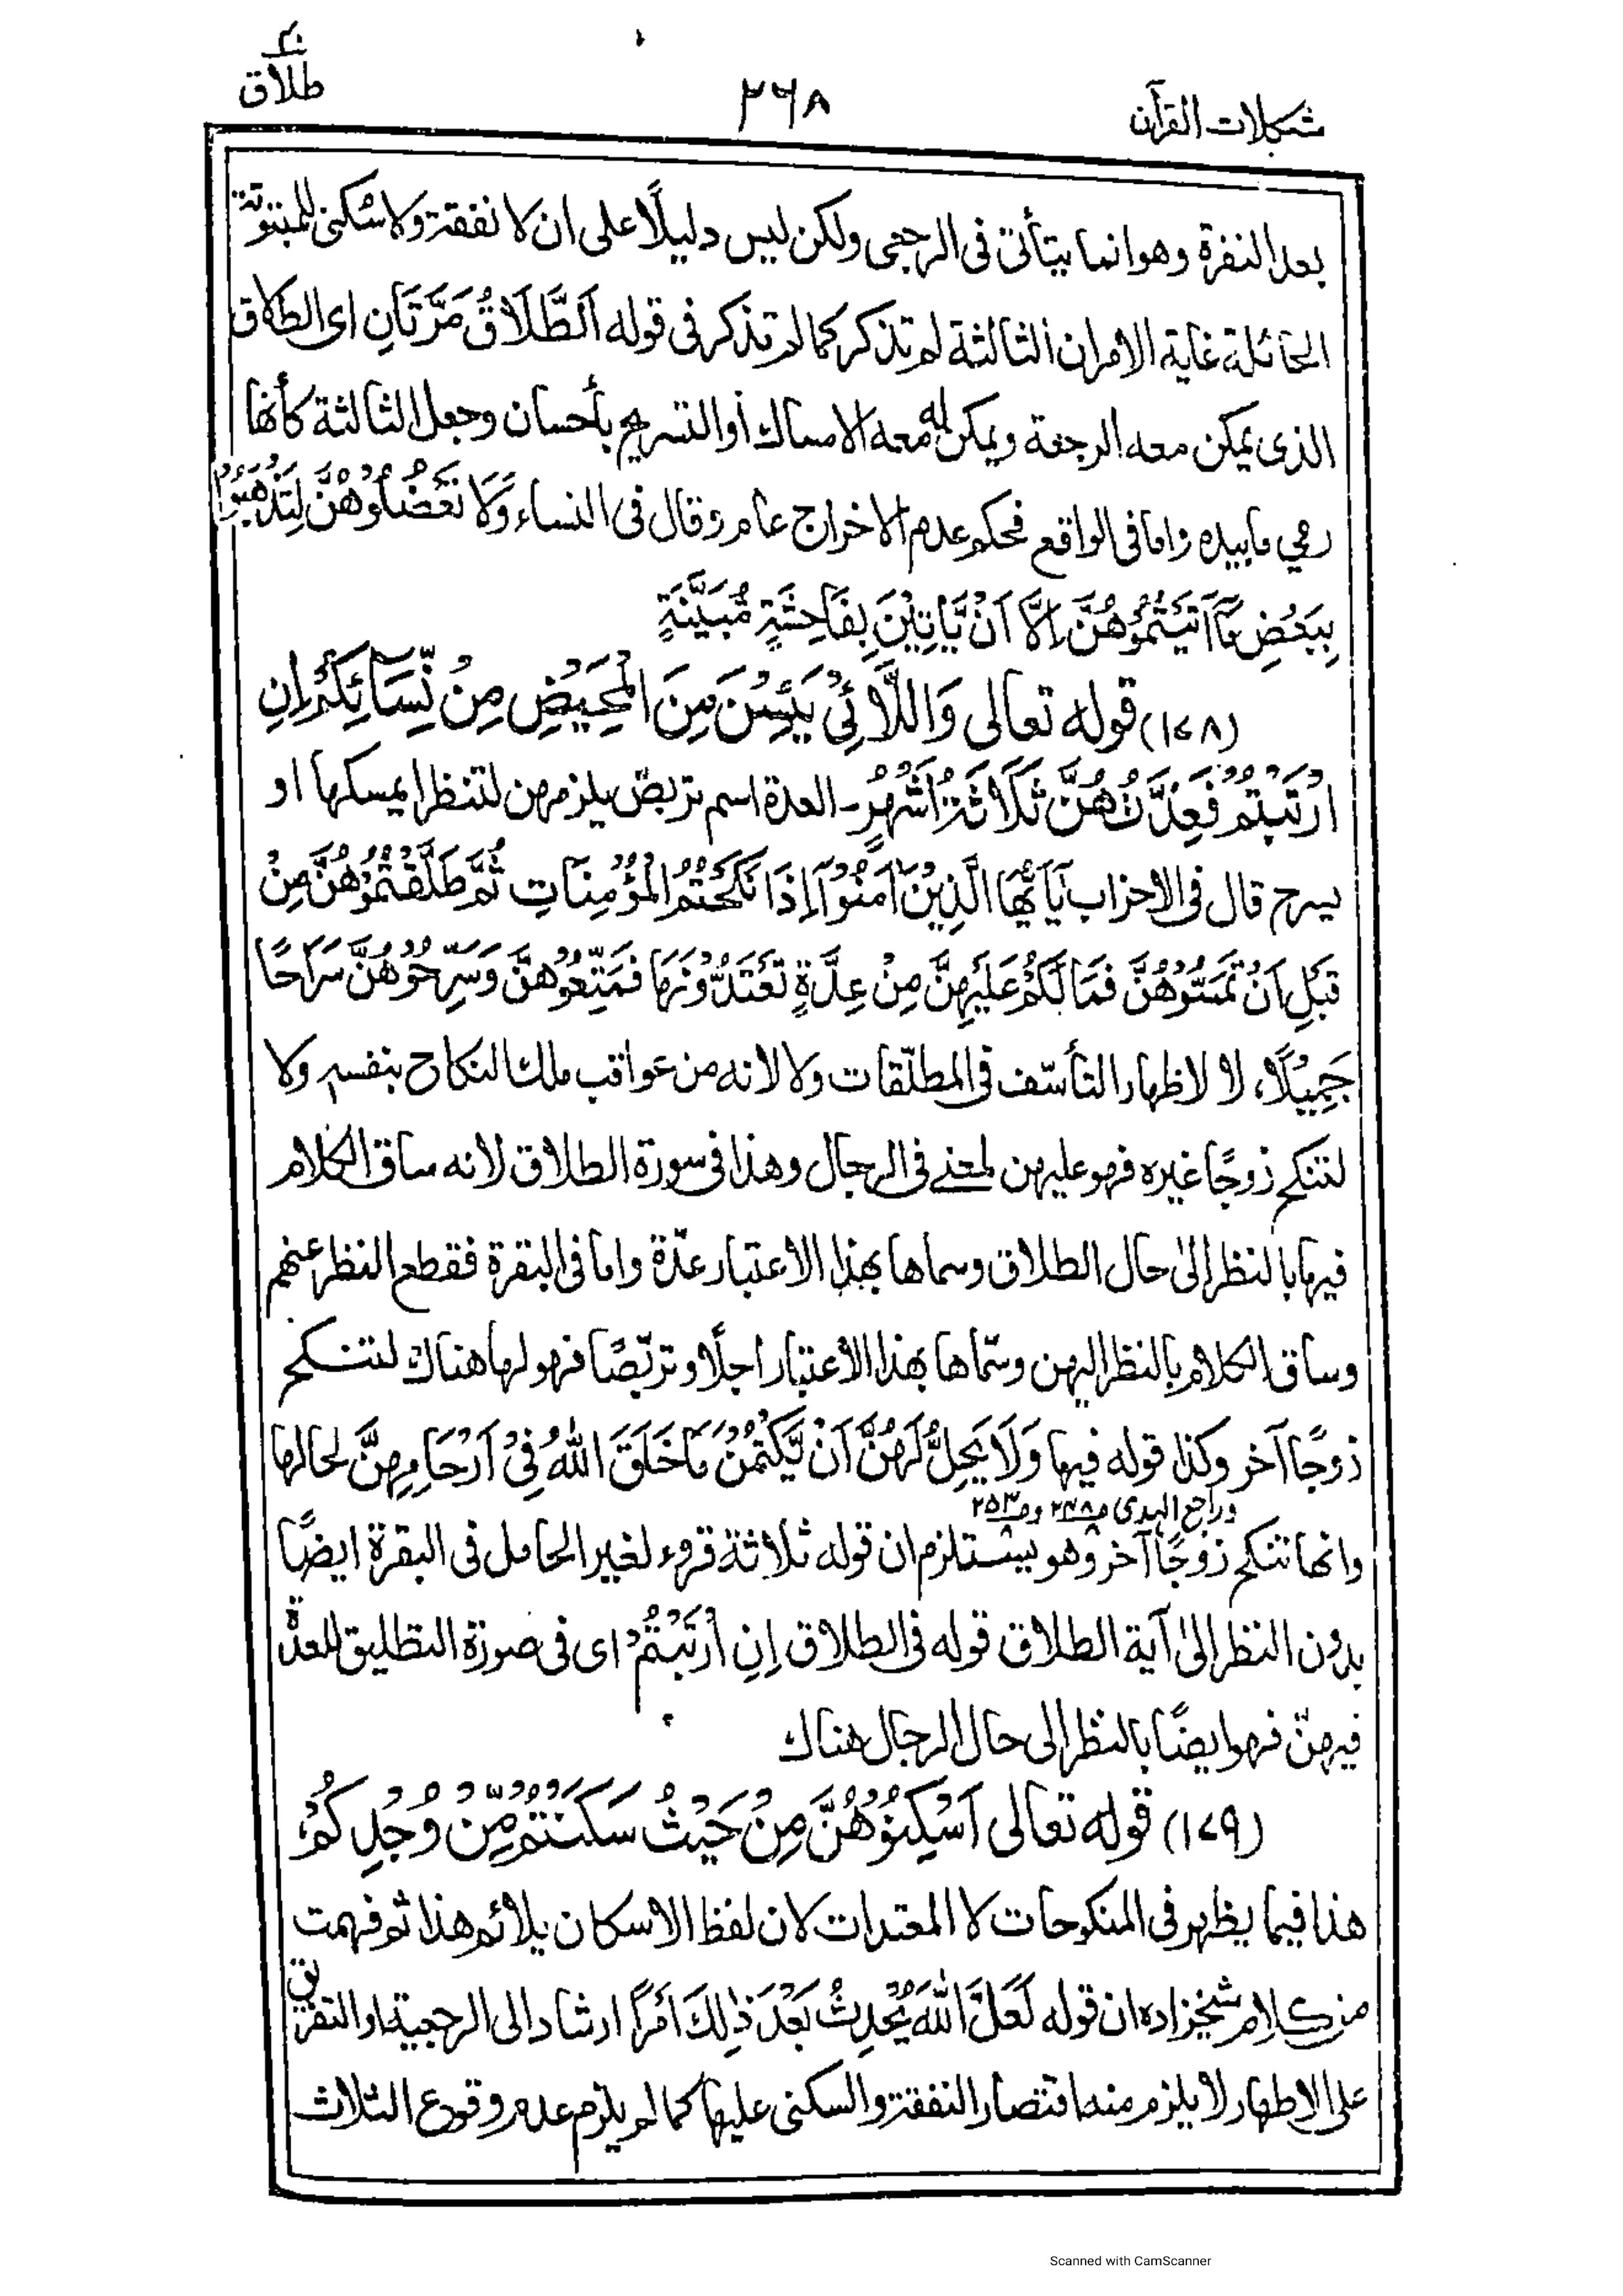 مشكلات القرآن ٢٦٨ طلاق
بعد النفرة وهو انما يتأتى فى الرجعى ولكن ليس دليلًا على ان لا نفقة ولا سكنى للمبتوتة
الحائلة غاية الامر ان الثالثة لم تذكر كما لم تذكر فى قوله اَلطَّلَاقُ مَرَّتَانِ اى الطلاق
الذى يمكن معه الرجعة ويمكن له معه الامساك أو التسريح بأحسان وجعل الثالثة كأنها
رمي ما بيده واما فى الواقع فحكم عدم الاخراج عام وقال فى النساء وَلَا تَعْضُلُوْهُنَّ لِتَذْهَبُوْا
بِبَعْضِ مَآ اٰتَيْتُمُوْهُنَّ اِلَّا اَنْ يَّاْتِيْنَ بِفَاحِشَةٍ مُّبَيَّنَةٍ
(١٧٨) قوله تعالى وَاللَّآئِيْ يَئِسْنَ مِنَ الْمَحِيْضِ مِنْ نِّسَآئِكُمْ اِنِ
ارْتَبْتُمْ فَعِدَّتُهُنَّ ثَلَاثَةُ اَشْهُرٍ ـ العدة اسم تربصّ يلزمهن لتنظر ايمسكها او
يسرح قال فى الاحزاب يَآ اَيُّهَا الَّذِيْنَ اٰمَنُوْآ اِذَا نَكَحْتُمُ الْمُؤْمِنَاتِ ثُمَّ طَلَّقْتُمُوْهُنَّ مِنْ
قَبْلِ اَنْ تَمَسُّوْهُنَّ فَمَا لَكُمْ عَلَيْهِنَّ مِنْ عِدَّةٍ تَعْتَدُّوْنَهَا فَمَتِّعُوْهُنَّ وَسَرِّحُوْهُنَّ سَرَاحًا
جَمِيْلًا، لا لاظهار التأسّف فى المطلّقات ولا لانه من عواقب ملك النكاح بنفسه ولا
لتنكح زوجًا غيره فهو عليهن لمعنے فى الرجال وهذا فى سورة الطلاق لانه ساق الكلام
فيها بالنظر الىٰ حال الطلاق وسماها بهذا الاعتبار عدّة واما فى البقرة فقطع النظر عنهم
وساق الكلام بالنظر اليهن وسمّاها بهذا الاعتبار اجلًا وتربّصًا فهو لها هناك لتنكح
زوجًا آخر وكذا قوله فيها وَلَا يَحِلُّ لَهُنَّ اَنْ يَّكْتُمْنَ مَا خَلَقَ اللّٰهُ فِيْ اَرْحَامِهِنَّ لحالها
وراجع الهدى
وانها تنكح زوجًا آخر وهو يستلزم ان قوله ثلاثة قروء لغير الحامل فى البقرة ايضًا
بدون النظر الىٰ آية الطلاق قوله فى الطلاق اِنِ ارْتَبْتُمْ اى فى صورة التطليق للعدّة
فيهنّ فهو ايضًا بالنظر الى حال الرجال هناك
(١٧٩) قوله تعالى اَسْكِنُوْهُنَّ مِنْ حَيْثُ سَكَنْتُمْ مِّنْ وُّجْدِكُمْ
هذا فيما يظهر فى المنكوحات لا المعتدات لان لفظ الاسكان يلائم هذا، ثم فهمت
من كلام شيخزاده ان قوله لَعَلَّ اللّٰهَ يُحْدِثُ بَعْدَ ذٰلِكَ اَمْرًا ارشاد الى الرجعية او التفريق
على الاطهار لا يلزم منه اقتصار النفقة والسكنى عليها كما لم يلزم عدم وقوع الثلاث
Scanned with CamScanner